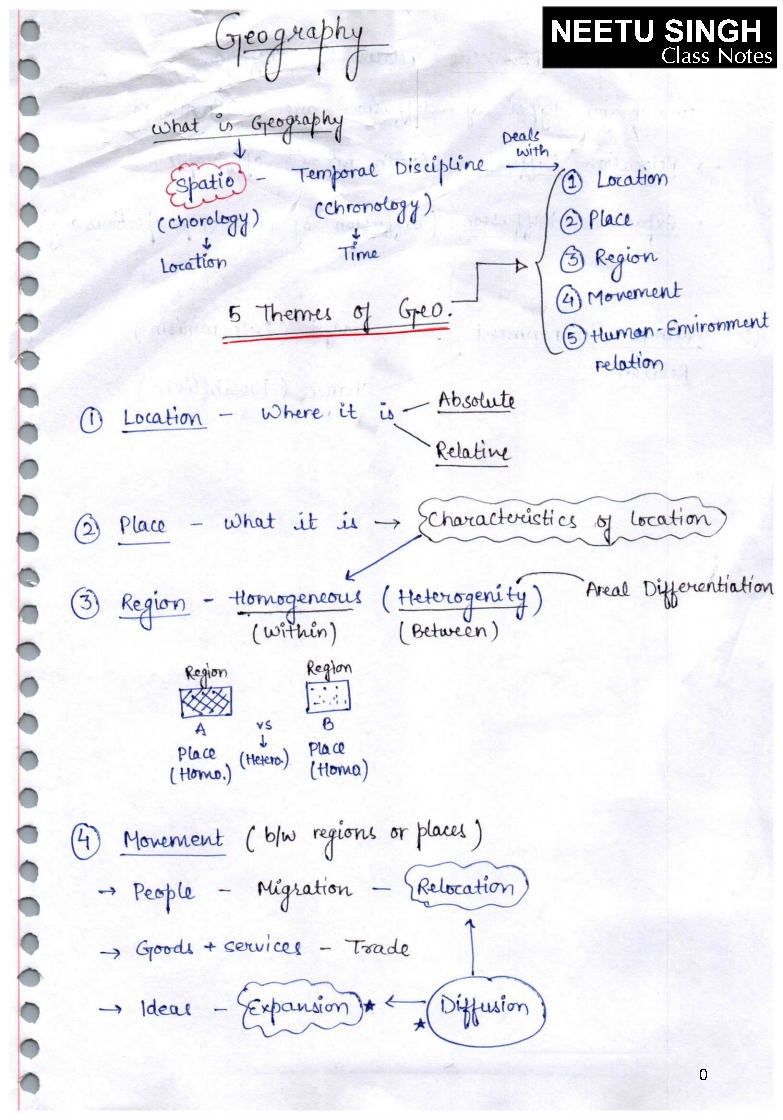 NEETU SINGH
Class Notes
Geography
What is Geography
Spatio - Temporal Discipline
Deals with
(chorology)
(Chronology)
Location
Time
5 Themes of Geo.
① Location
② Place
③ Region
④ Movement
⑤ Human-Environment
relation
① Location - Where it is
Absolute
Relative
② Place - What it is → Characteristics of location
③ Region - Homogeneous (Heterogenity) Areal Differentiation
(Within) (Between)
Region Region
A vs B
Place (Hetero.) Place
(Homo.) (Homo)
④ Movement (b/w regions or places)
→ People - Migration - Relocation
→ Goods + services - Trade
→ Ideas - Expansion ★ ← ★ Diffusion
0